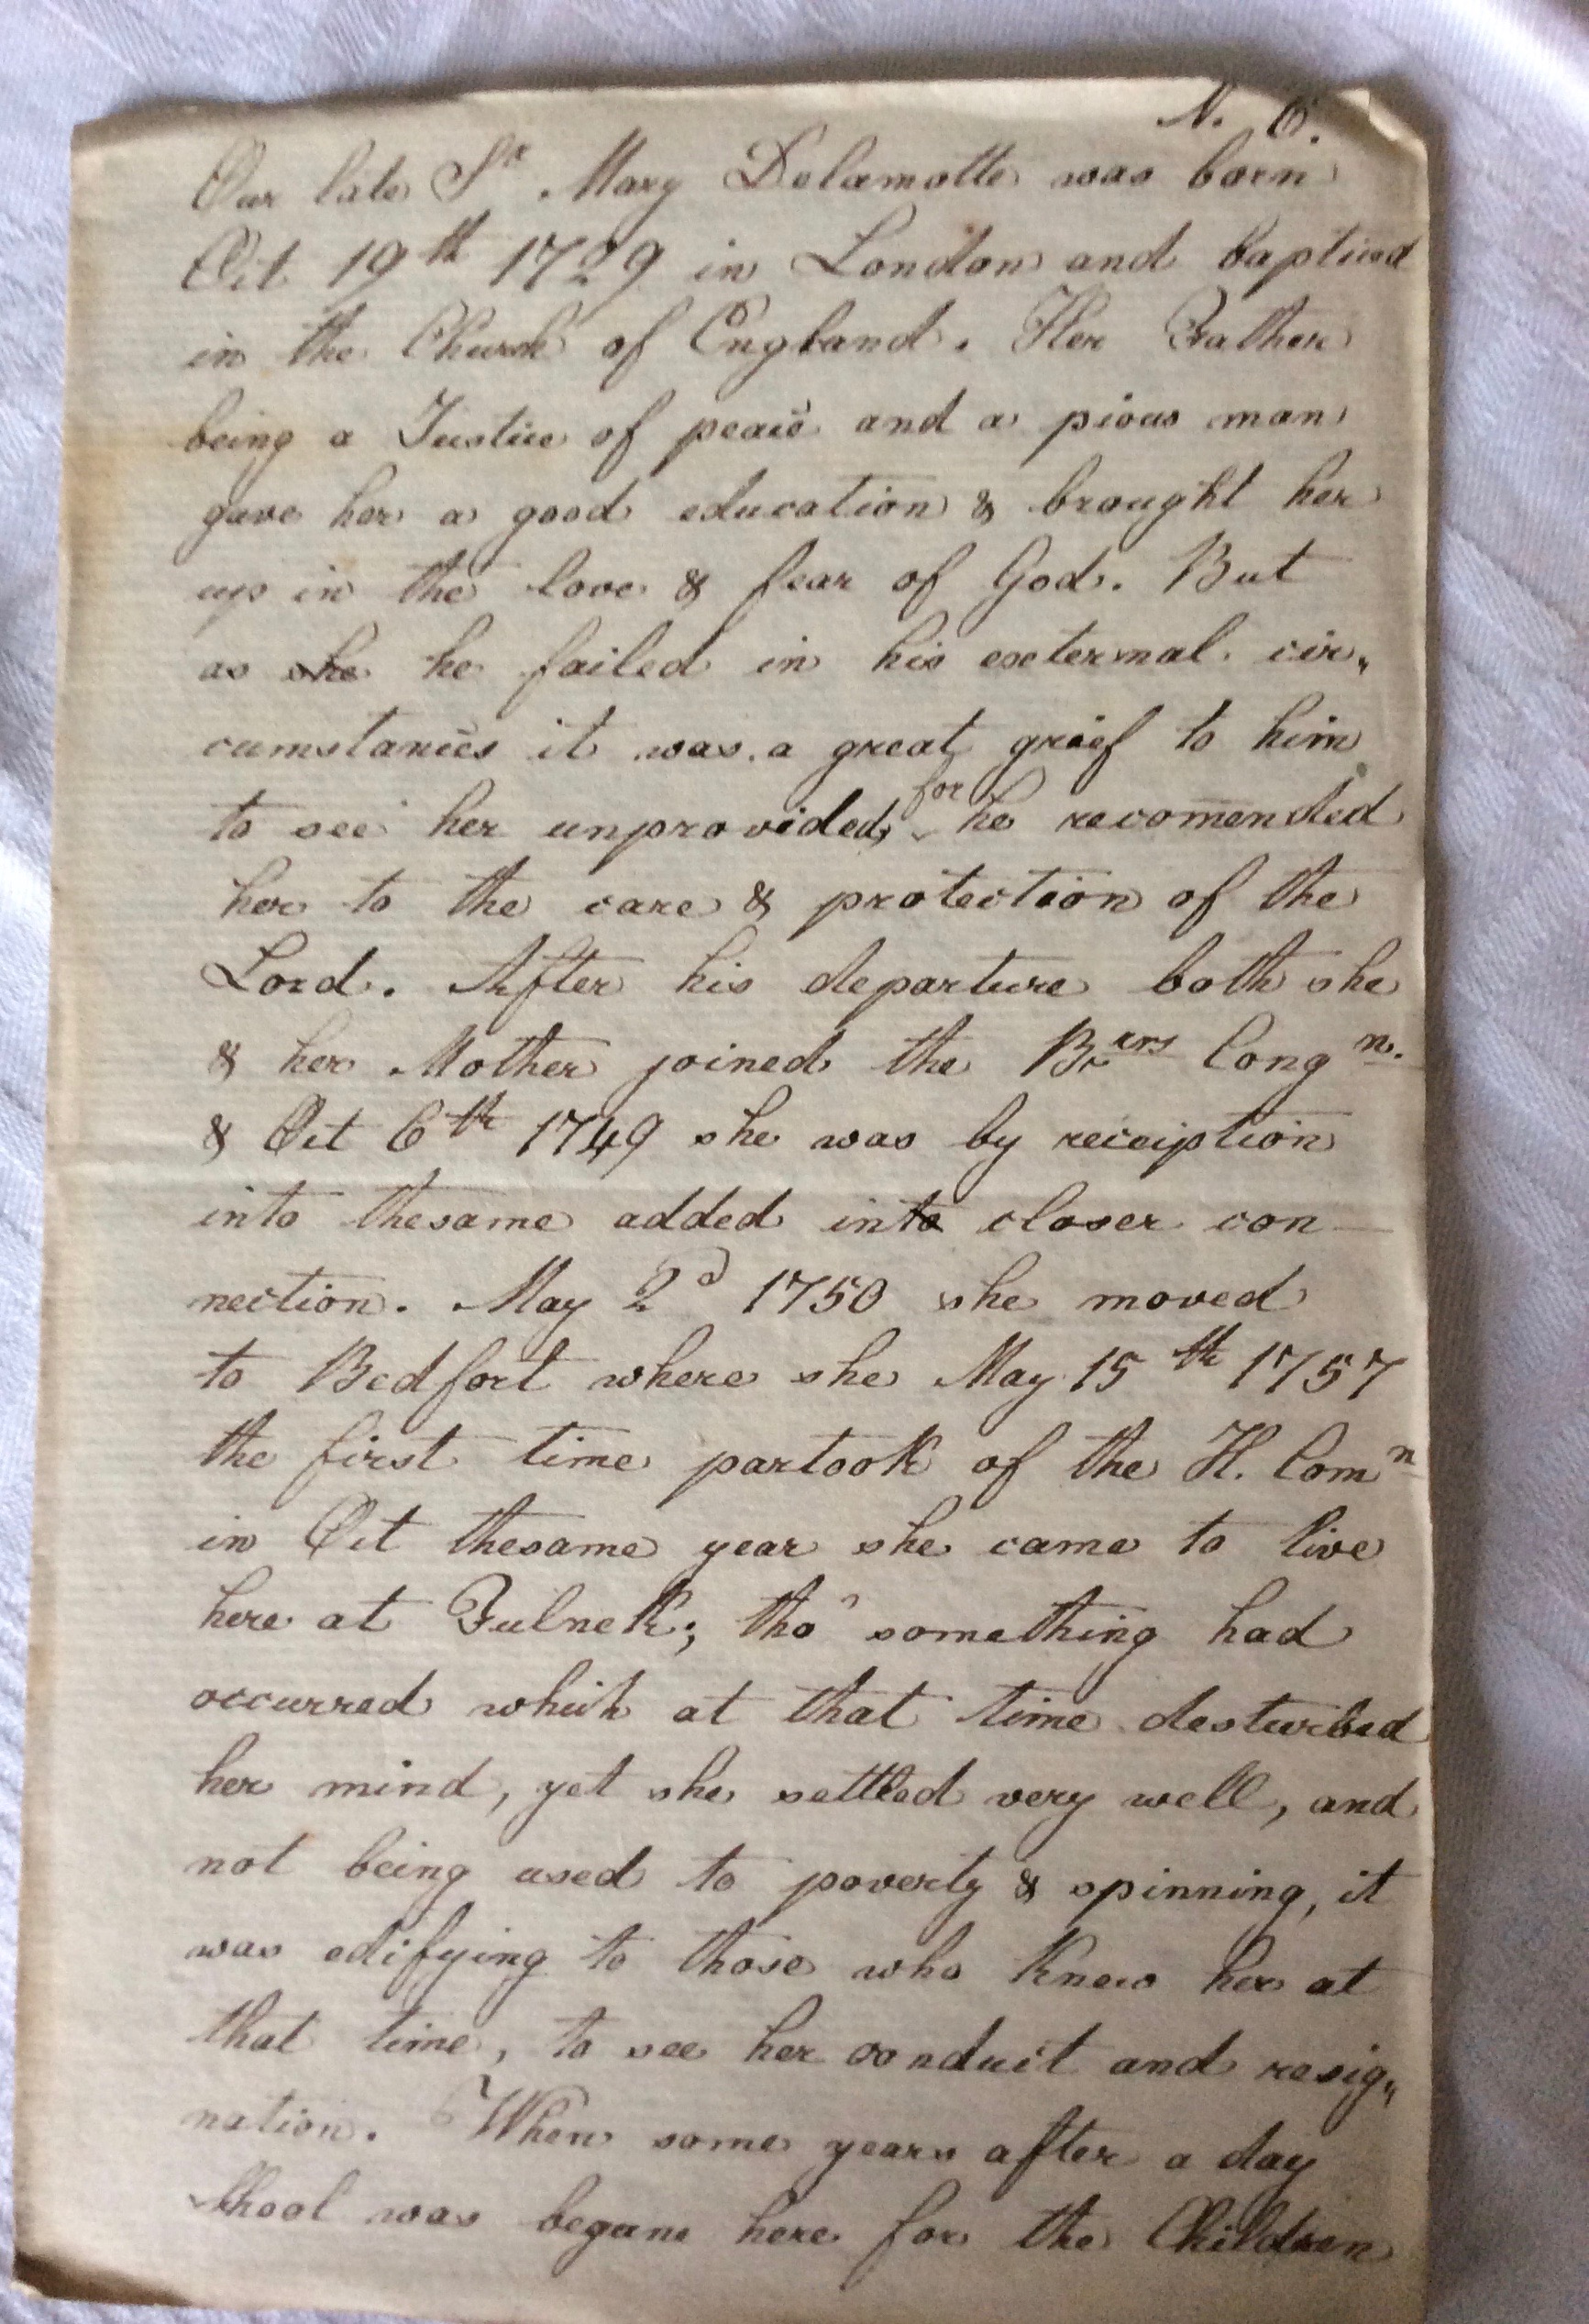 N. 6.
Our late Sr. Mary Delamotte was born
Oct 19th 1729 in London and baptized
in the Church of England. Her Father
being a Justice of peace and a pious man
gave her a good education & brought her
up in the love & fear of God. But
as she he failed in his external cir„
cumstances it was a great grief to him
to see her unprovided, for he recom̄ended
her to the care & protection of the
Lord. After his departure both she
& her Mother joined the Brrns Congn.
& Oct 6th 1749 she was by reception
into thesame added into closer con—
nection. May 2d 1750 she moved
to Bedfort where she May 15th 1757
the first time partook of the H. Comn
in Oct thesame year she came to live
here at Fulnek; tho' something had
occurred which at that time desturbed
her mind, yet she settled very well, and
not being used to poverty & spinning, it
was edifying to those who knew her at
that time, to see her conduct and resig„
nation. When some years after a day
School was began here for the Children